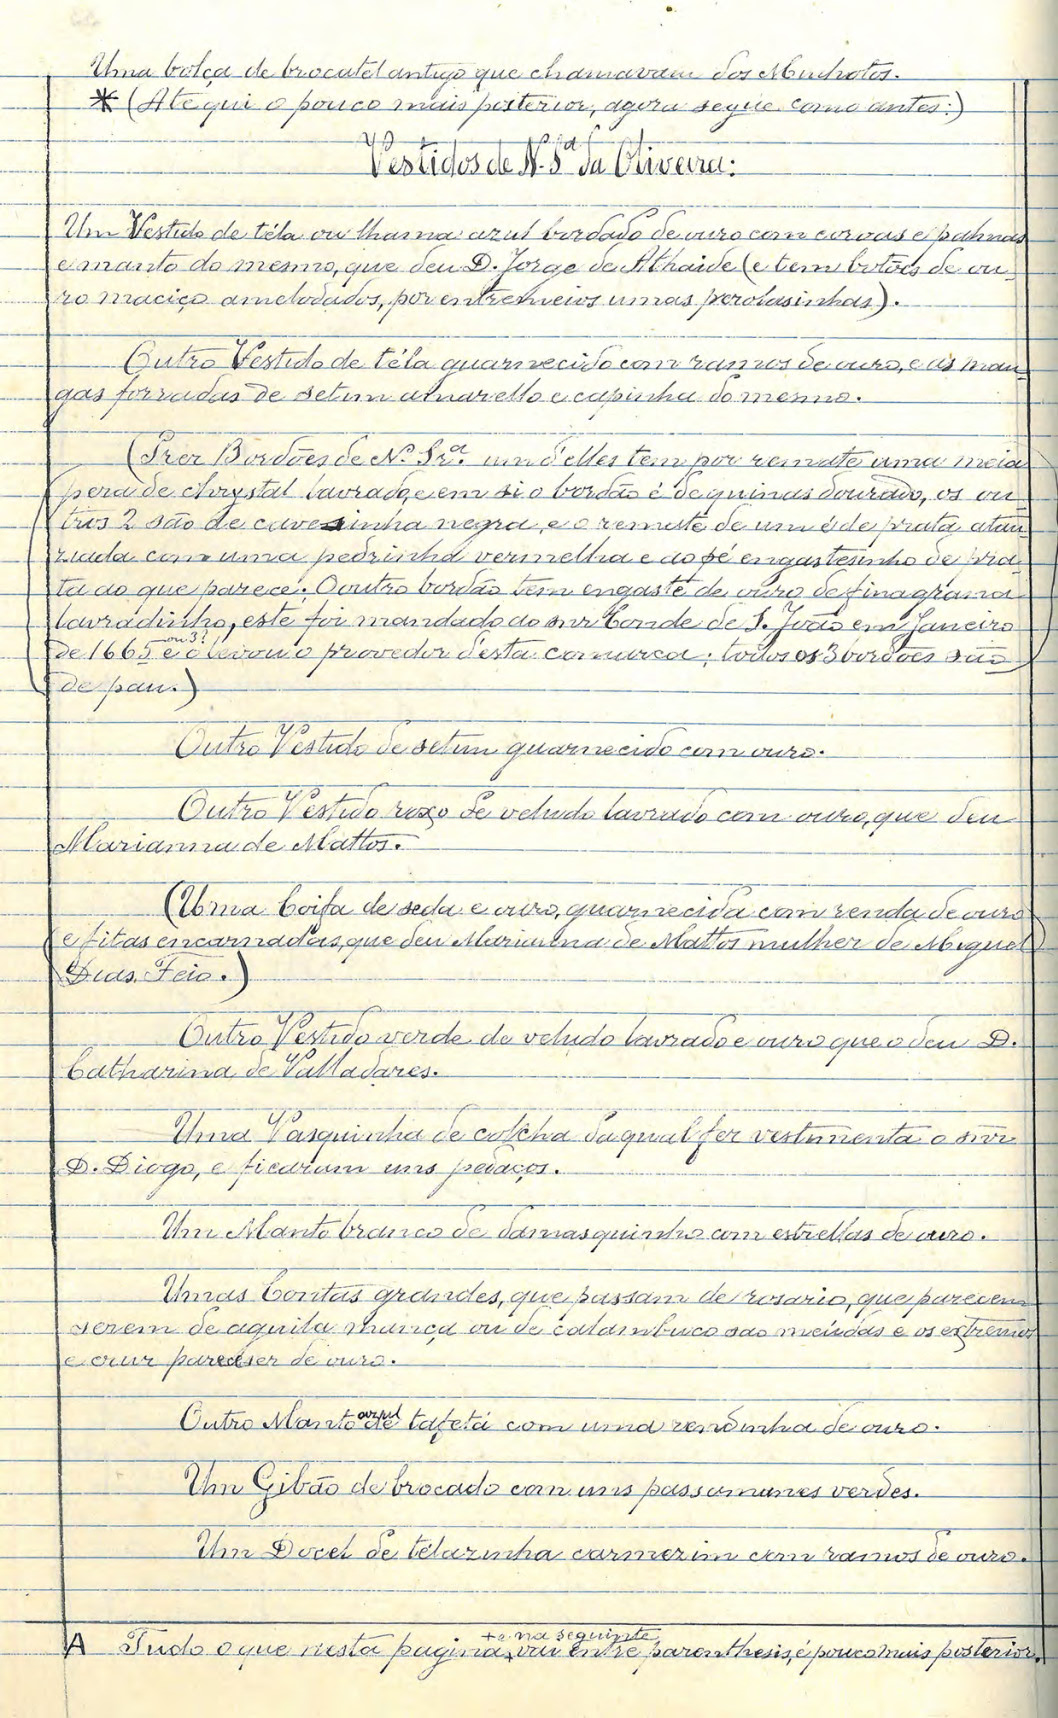 Uma bolça de brocatel antigo que chamavam dos Minhotos.
* (Até qui o pouco mais posterior, agora segue como antes:)
Vestidos de N. Sª da Oliveira:
Um Vestido de téla ou lhama azul bordado de ouro com coroas e palmas
e manto do mesmo, que deu D. Jorge de Athaide (e tem botões de ou-
ro maciço amelodados, por entremeios umas perolasinhas).
Outro Vestido de téla guarnecido com ramos de ouro, e as man-
gas forradas de setim amarello e capinha do mesmo.
(Trez Bordões de Nª Srª. um d'elles tem por remate uma meia
pera de chrystal lavrado, e em si o bordão é de quinas dourado, os ou-
tros 2 são de cavesinha negra, e o remate de um é de prata atau-
ziada com uma pedrinha vermelha e ao pé engastesinho de pra-
ta ao que parece; O outro bordão tem engaste de ouro de finagrana
lavradinho, este foi mandado ao snr Conde de S. João em Janeiro
ou 3?
de 1665 e o levou o provedor d'esta comarca; todos os 3 bordões são
de pau.)
Outro Vestido de setim guarnecido com ouro.
Outro Vestido roxo de veludo lavrado com ouro, que deu
Marianna de Mattos.
(Uma Coifa de seda e ouro, guarnecida com renda de ouro
e fitas encarnadas, que deu Marianna de Mattos mulher de Miguel
Dias Feio.)
Outro Vestido verde de veludo lavrado e ouro que o deu D.
Catharina de Valladares.
Uma Vasquinha de colcha da qual fez vestimenta o snr
D. Diogo, e ficaram uns pedaços.
Um Manto branco de damasquinho com estrellas de ouro.
Umas Contas grandes, que passam de rosario, que parecem
serem de aguila mança ou de calambuco são meúdas e os extremos
e cruz parecer de ouro.
azul
Outro Manto de tafetá com uma rendinha de ouro.
Um Gibão de brocado com uns passamanes verdes.
Um Docel de télazinha carmezim com ramos de ouro.
+ e na seguinte
A Tudo o que nesta pagina, + vai entre parenthesis, é pouco mais posterior.